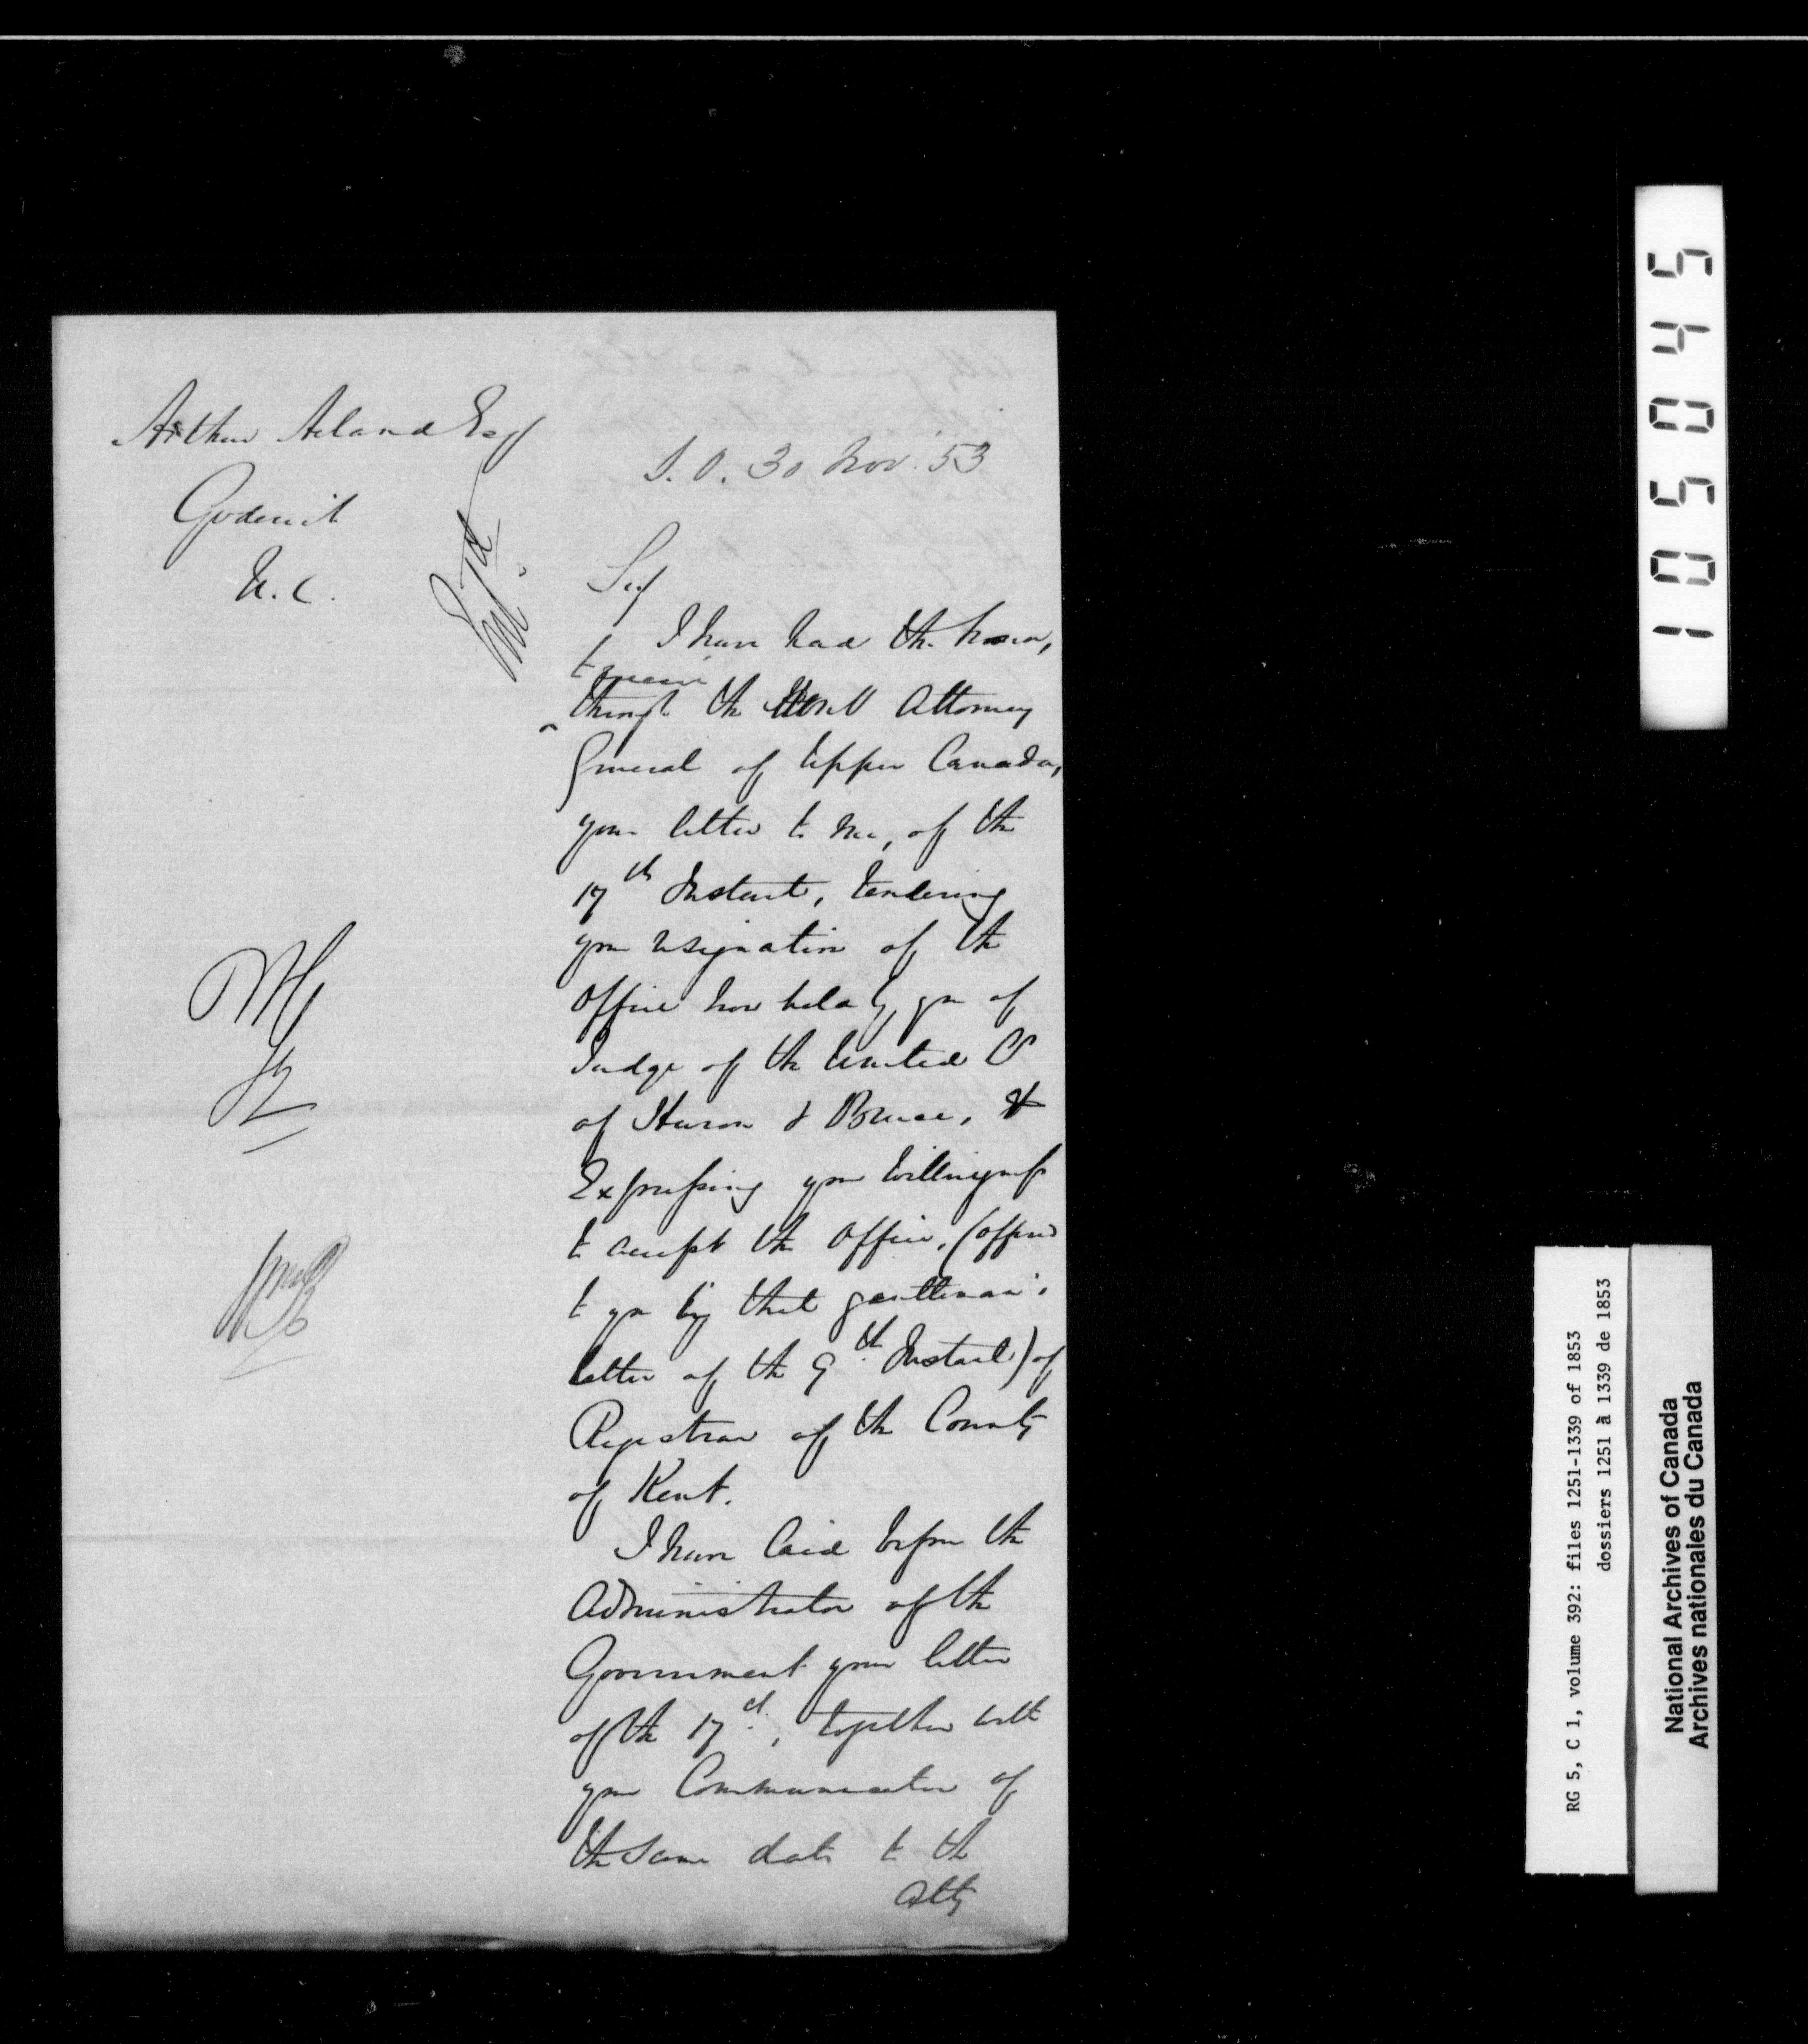 Arthur Acland Esq
Goderich
U.C.
S.O. 30 Nov. '53
Sir
I have had the honor,
to receive
through the Honbl Attorney
General of Upper Canada,
your letter to me, of the
17th Instant, tendering
your resignation of the
Office now held by you of
Judge of the United Cs
of Huron & Bruce, &
Expressing your willingness
to accept the Office, (offered
to you by that gentleman's
letter of the 9th Instant) of
Registrar of the County
of Kent.
I have laid before the
Administrator of the
Government your letter
of the 17th, together with
your Communication of
the same date to the
Atty
105045
RG 5, C 1, volume 392: files 1251-1339 of 1853
dossiers 1251 à 1339 de 1853
National Archives of Canada
Archives nationales du Canada